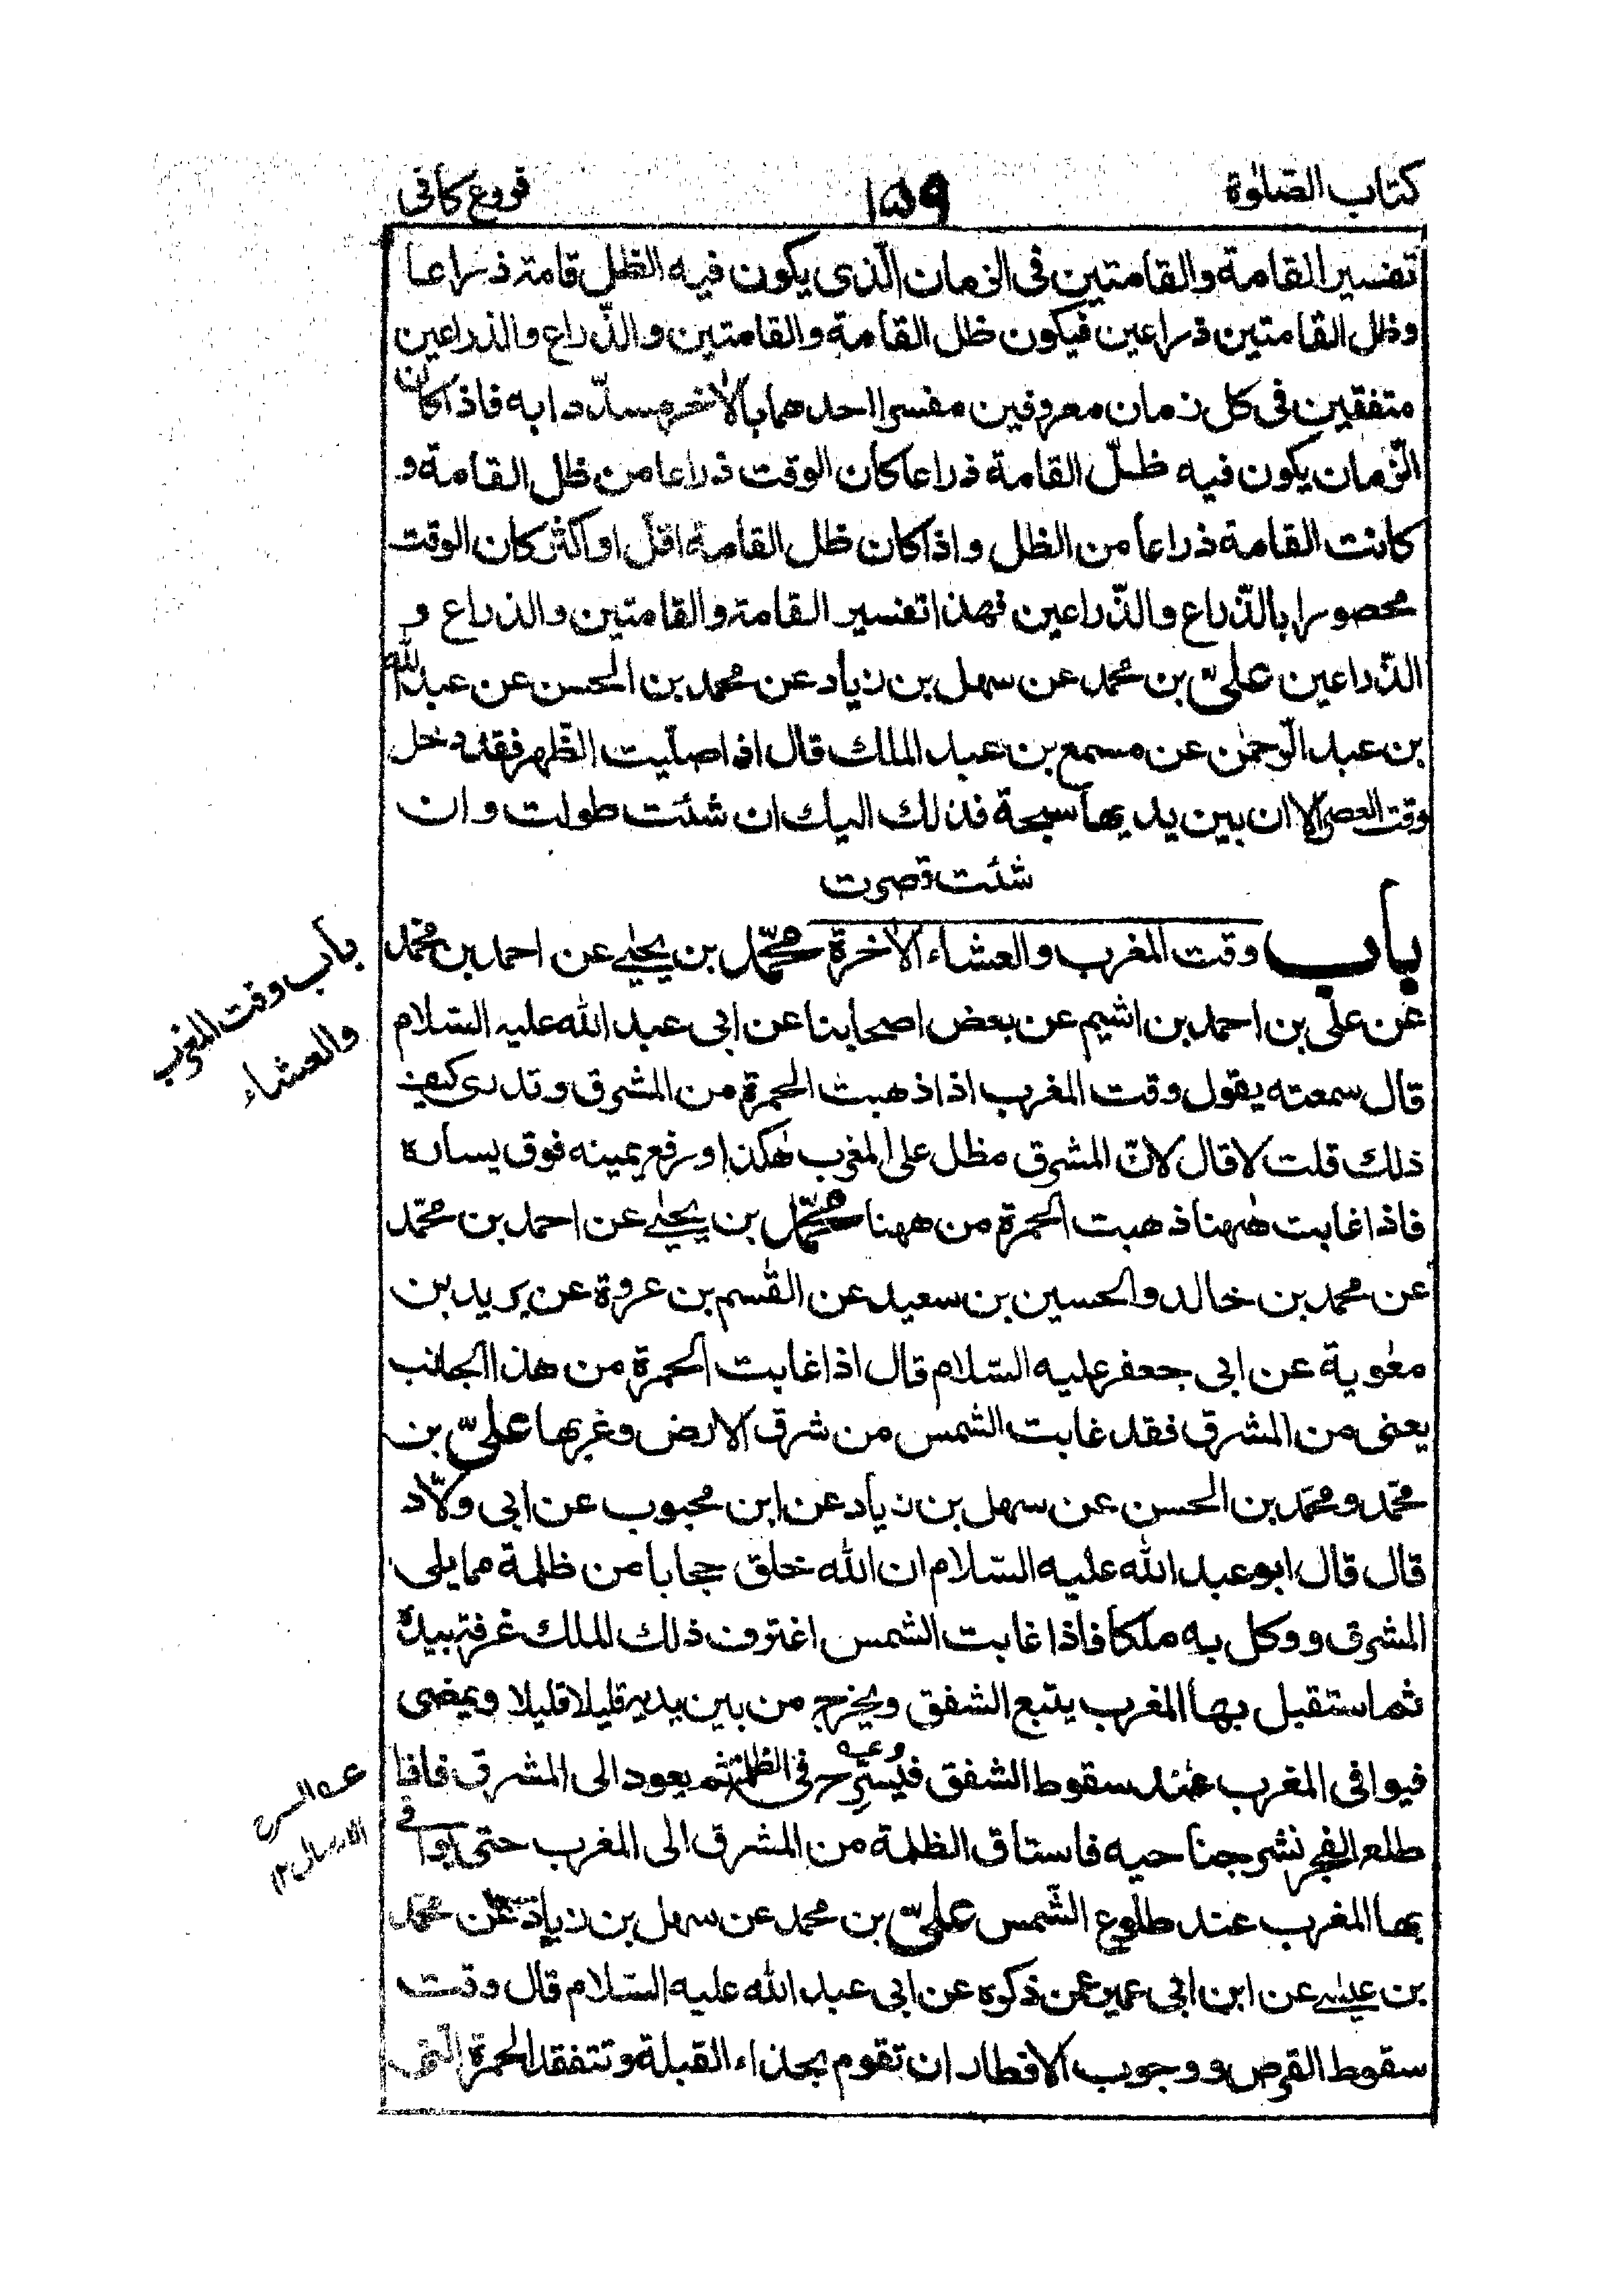 كتاب الصّلوٰة
١٥٩
فروع كافى
تفسير القامة والقامتين فى الزمان الّذى يكون فيه الظل قامة ذراعا
وظل القامتين ذراعين فيكون ظل القامة والقامتين والذّراع والذراعين
متفقين فى كل زمان معروفين مفسرا احدهما بالآخر مسدّدا به فاذا كان
الزّمان يكون فيه ظلّ القامة ذراعا كان الوقت ذراعا من ظل القامة و
كانت القامة ذراعا من الظل واذا كان ظل القامة اقل او اكثر كان الوقت
محصورا بالذّراع والذّراعين فهذا تفسير القامة والقامتين والذراع و
الذّراعين علىّ بن محمد عن سهل بن زياد عن محمد بن الحسن عن عبد الله
بن عبد الرّحمٰن عن مسمع بن عبد الملك قال اذا صلّيت الظّهر فقد دخل
وقت العصر الا ان بين يديها سبحة فذلك اليك ان شئت طولت وان
شئت قصرت
باب وقت المغرب والعشاء الآخرة محمّد بن يحيىٰ عن احمد بن محمّد
عن علىّ بن احمد بن اشيم عن بعض اصحابنا عن ابى عبد الله عليه السّلام
قال سمعته يقول وقت المغرب اذا ذهبت الحمرة من المشرق وتدرى كيف
ذلك قلت لا قال لانّ المشرق مظل على المغرب هٰكذا ورفع يمينه فوق يساره
فاذا غابت هٰهنا ذهبت الحمرة من ههنا محمّد بن يحيىٰ عن احمد بن محمّد
عن محمد بن خالد والحسين بن سعيد عن القٰسم بن عروة عن بريد بن
معٰوية عن ابى جعفر عليه السّلام قال اذا غابت الحمرة من هذا الجانب
يعنى من المشرق فقد غابت الشمس من شرق الارض وغربها علىّ بن
محمّد ومحمّد بن الحسن عن سهل بن زياد عن ابن محبوب عن ابى ولّاد
قال قال ابو عبد الله عليه السّلام ان الله خلق حجابا من ظلمة مما يلى
المشرق ووكل به ملكا فاذا غابت الشمس اغترف ذلك الملك غرفة بيده
ثم استقبل بها المغرب يتبع الشفق ويخرج من بين يديه قليلا قليلا ويمضى
فيوافى المغرب عند سقوط الشفق فيُسرِّح فى الظلمة ثم يعود الى المشرق فاذا
طلع الفجر نشر جناحيه فاستاق الظلمة من المشرق الى المغرب حتى يوافى
بها المغرب عند طلوع الشّمس علىّ بن محمد عن سهل بن زياد عن محمّد
بن عيسىٰ عن ابن ابى عمير عمن ذكره عن ابى عبد الله عليه السّلام قال وقت
سقوط القرص ووجوب الافطار ان تقوم بحذاء القبلة وتتفقد الحمرة الّتى
باب وقت المغرب
والعشاء